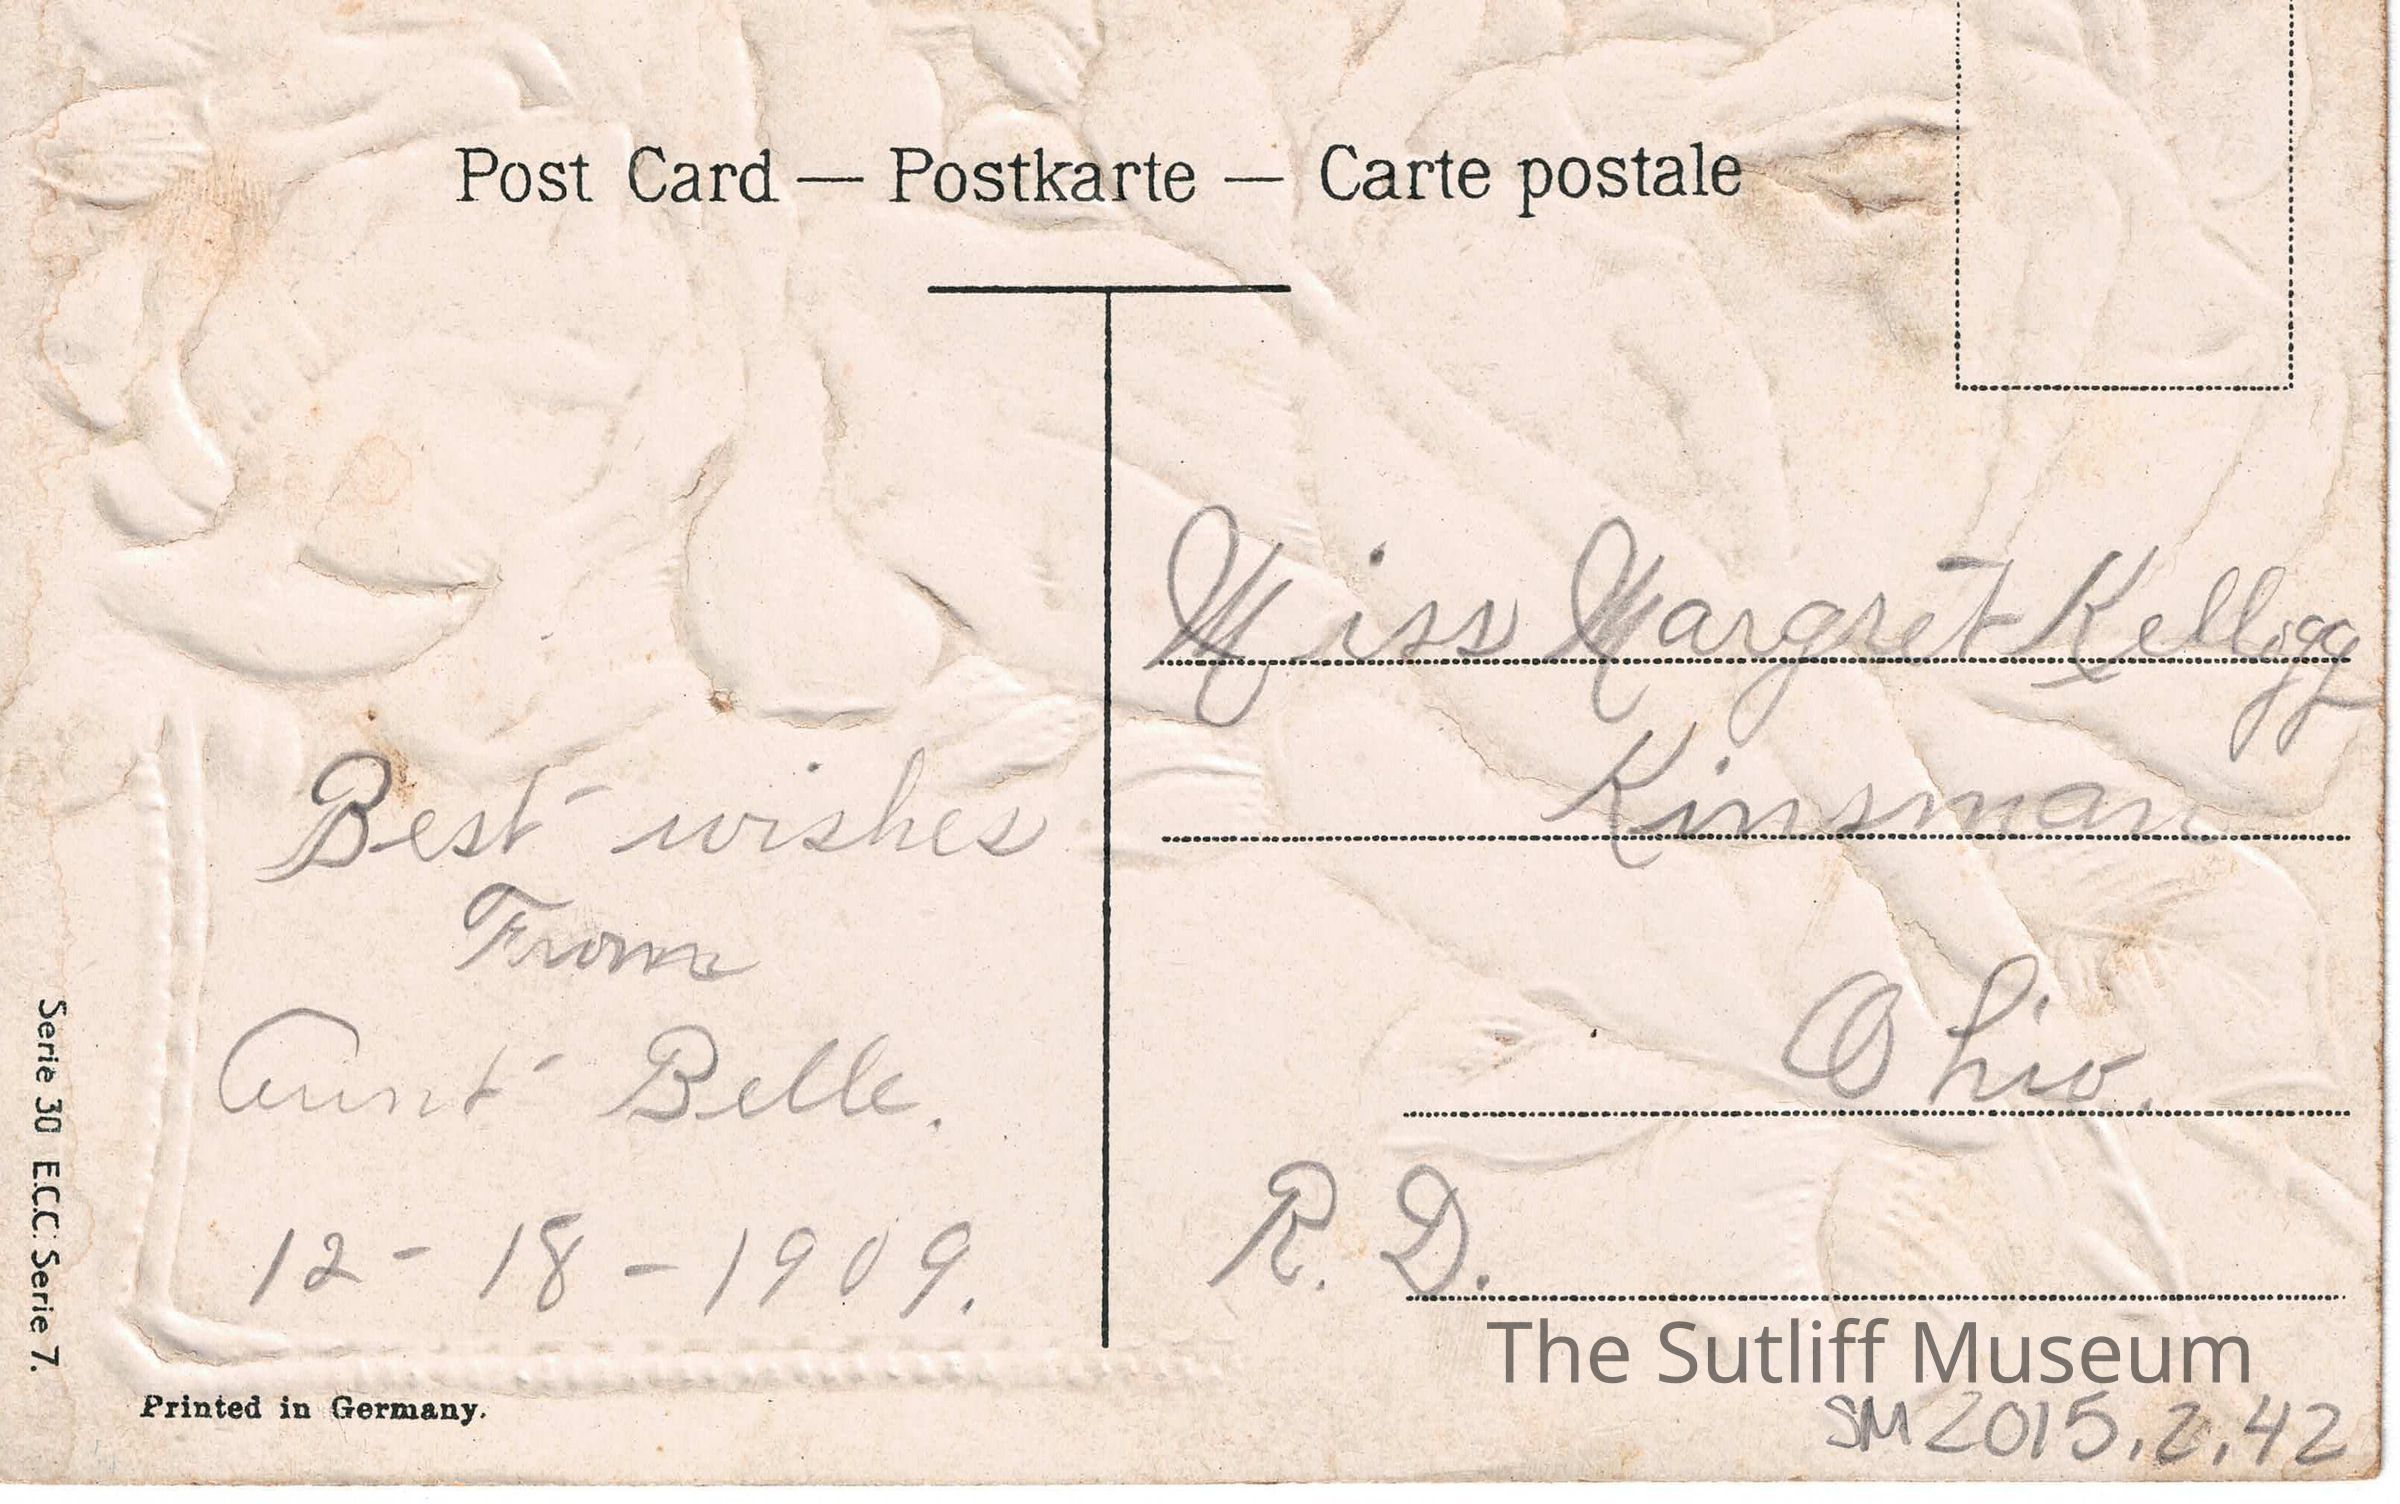 Post Card — Postkarte — Carte postale
Miss Margret Kellogg
Kinsman
Ohio.
R. D.
Best wishes
From
Aunt Belle.
12 - 18 - 1909.
Serie 30 E.C.C. Serie 7.
Printed in Germany.
The Sutliff Museum
SM2015.2.42